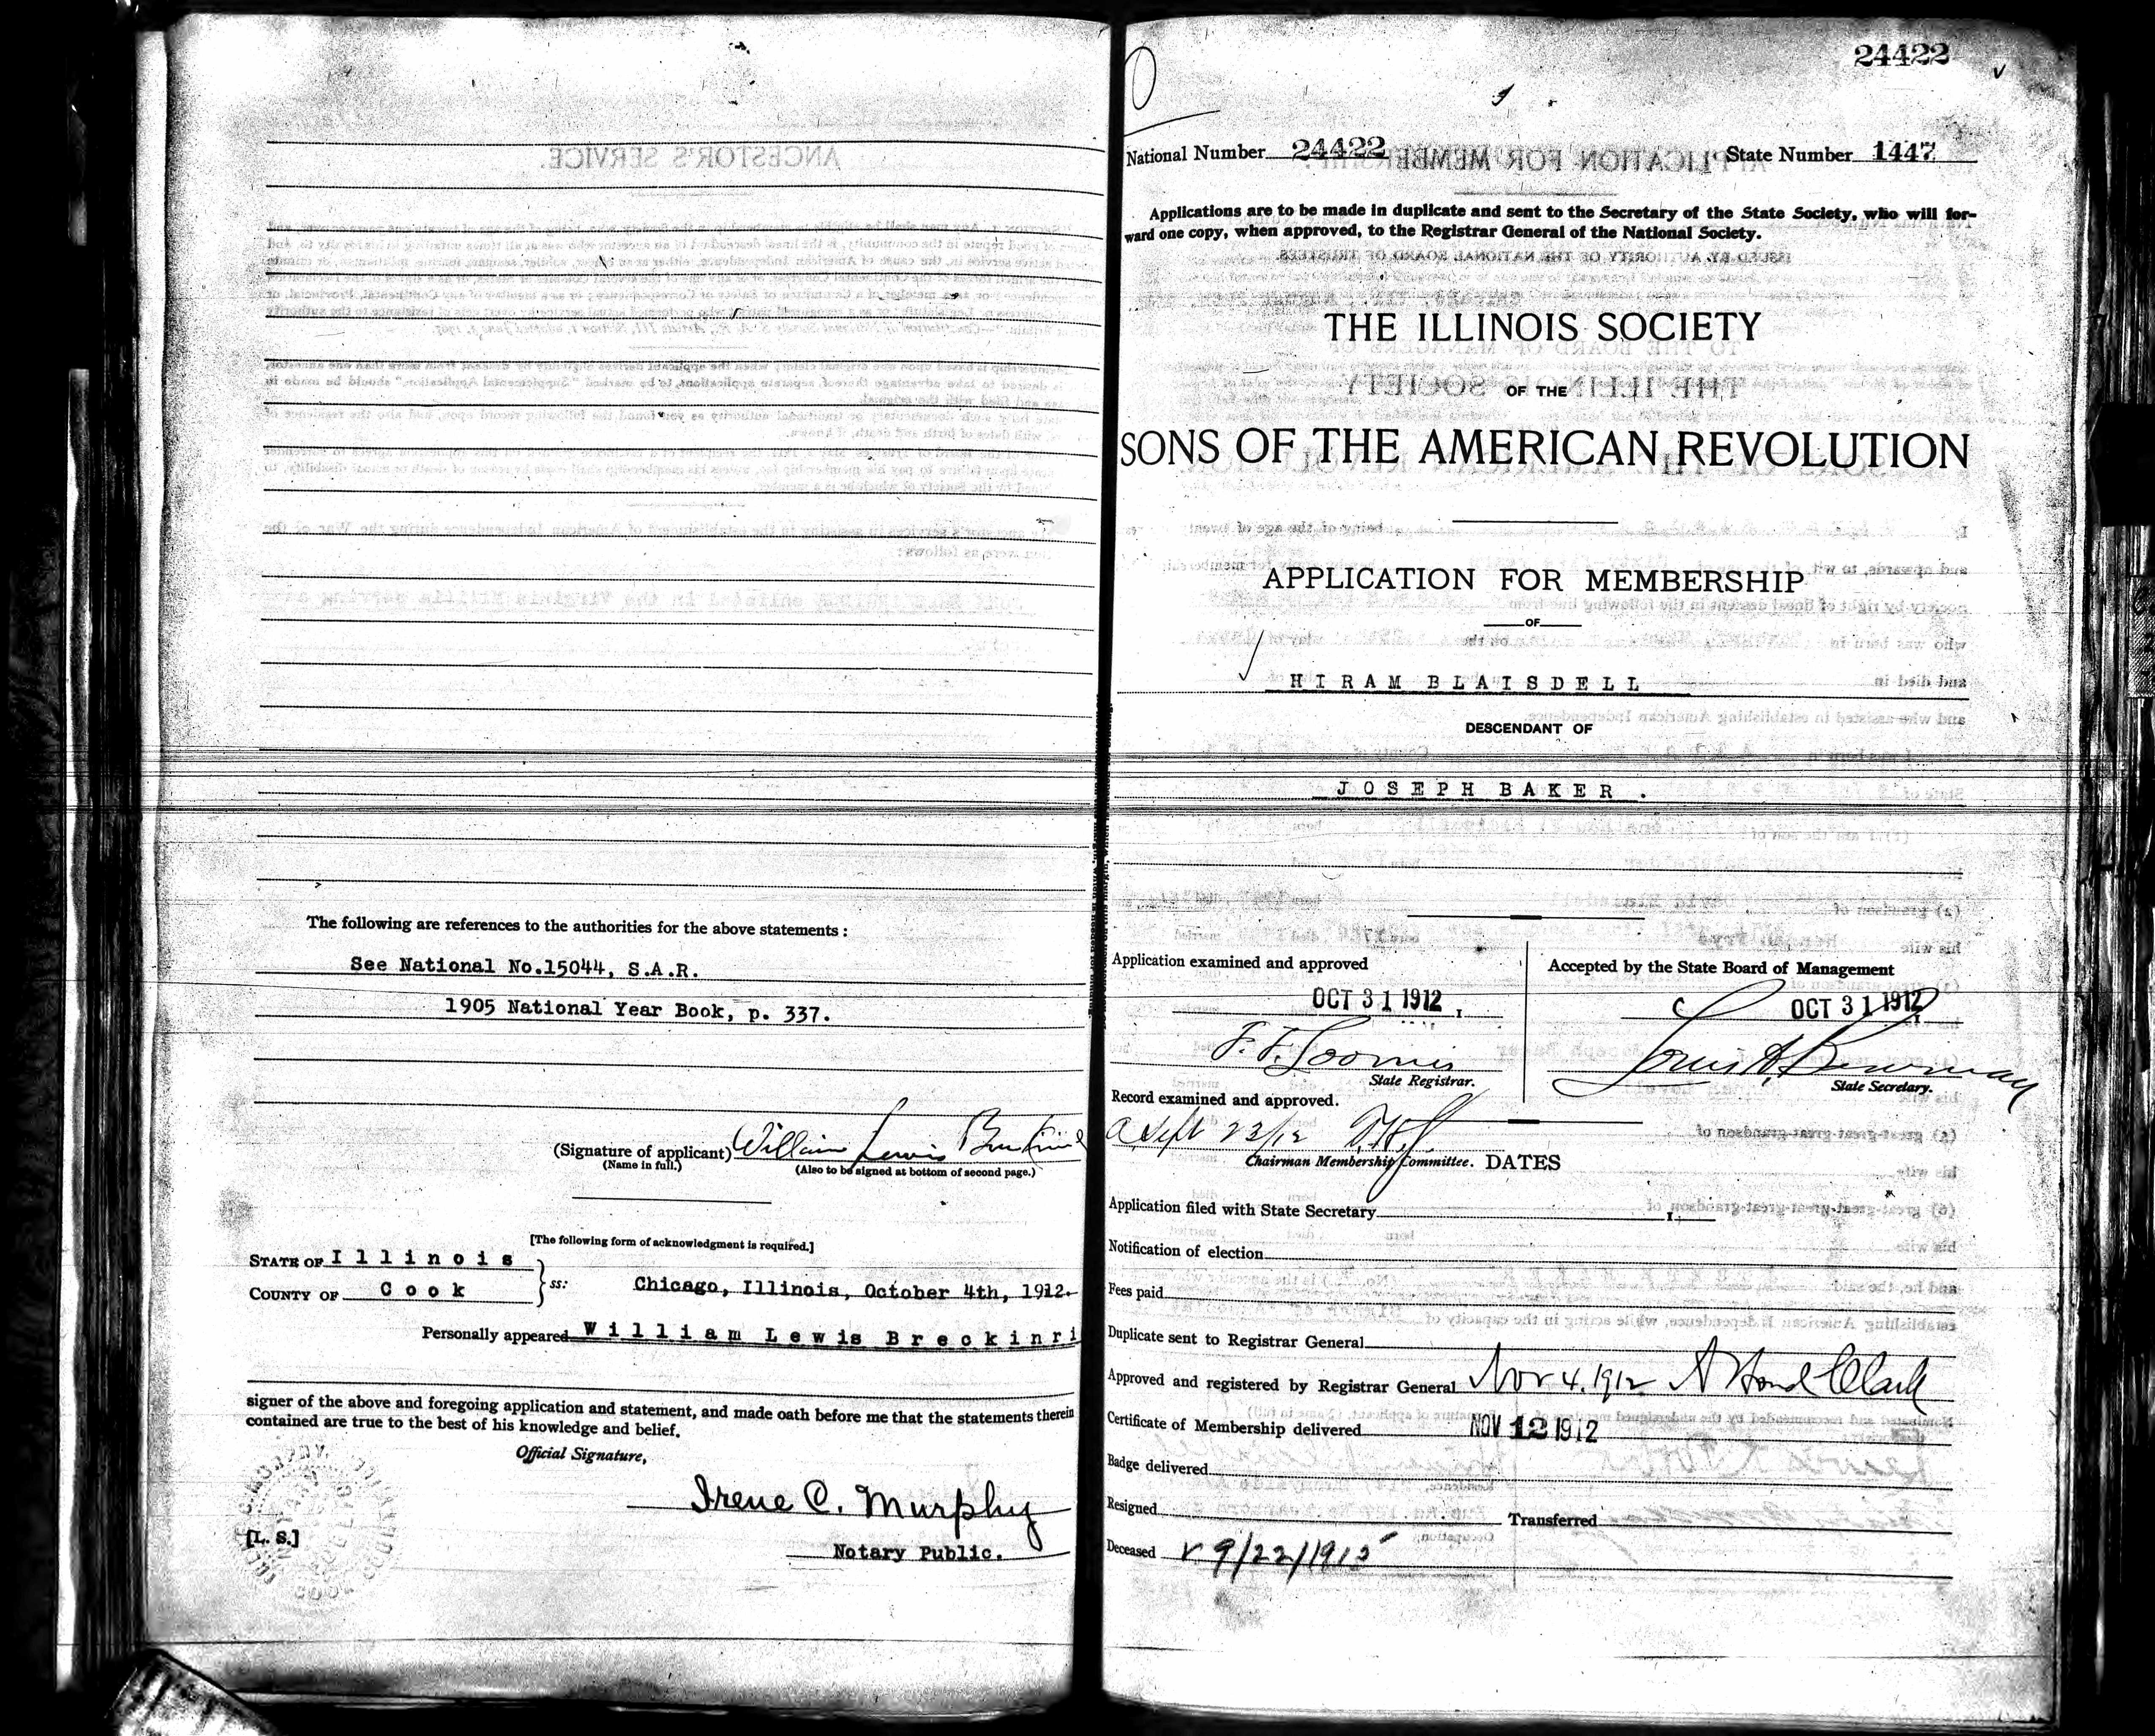 The following are references to the authorities for the above statements:
See National No.15044, S.A.R.
1905 National Year Book, p. 337.
(Signature of applicant) William Lewis
(Name in full.) (Also to be signed at bottom of second page.)
[The following form of acknowledgment is required.]
STATE OF Illinois
COUNTY OF Cook
ss: Chicago, Illinois, October 4th, 1912.
Personally appeared William Lewis Breckinri
signer of the above and foregoing application and statement, and made oath before me that the statements therein
contained are true to the best of his knowledge and belief.
Official Signature,
Irene C. Murphy
[L. S.]
Notary Public.
24422
National Number 24422 State Number 1447
Applications are to be made in duplicate and sent to the Secretary of the State Society, who will for-
ward one copy, when approved, to the Registrar General of the National Society.
THE ILLINOIS SOCIETY
OF THE
SONS OF THE AMERICAN REVOLUTION
APPLICATION FOR MEMBERSHIP
OF
HIRAM BLAISDELL
DESCENDANT OF
JOSEPH BAKER.
Application examined and approved
OCT 31 1912,
F. F. Loomis
State Registrar.
Accepted by the State Board of Management
OCT 31 1912,
Louis A. Bowman
State Secretary.
Record examined and approved.
Sept 23/12
Chairman Membership Committee.
DATES
Application filed with State Secretary
Notification of election
Fees paid
Duplicate sent to Registrar General
Approved and registered by Registrar General Nov 4. 1912 A Howard Clark
Certificate of Membership delivered NOV 12 1912
Badge delivered
Resigned Transferred
Deceased 9/22/1915